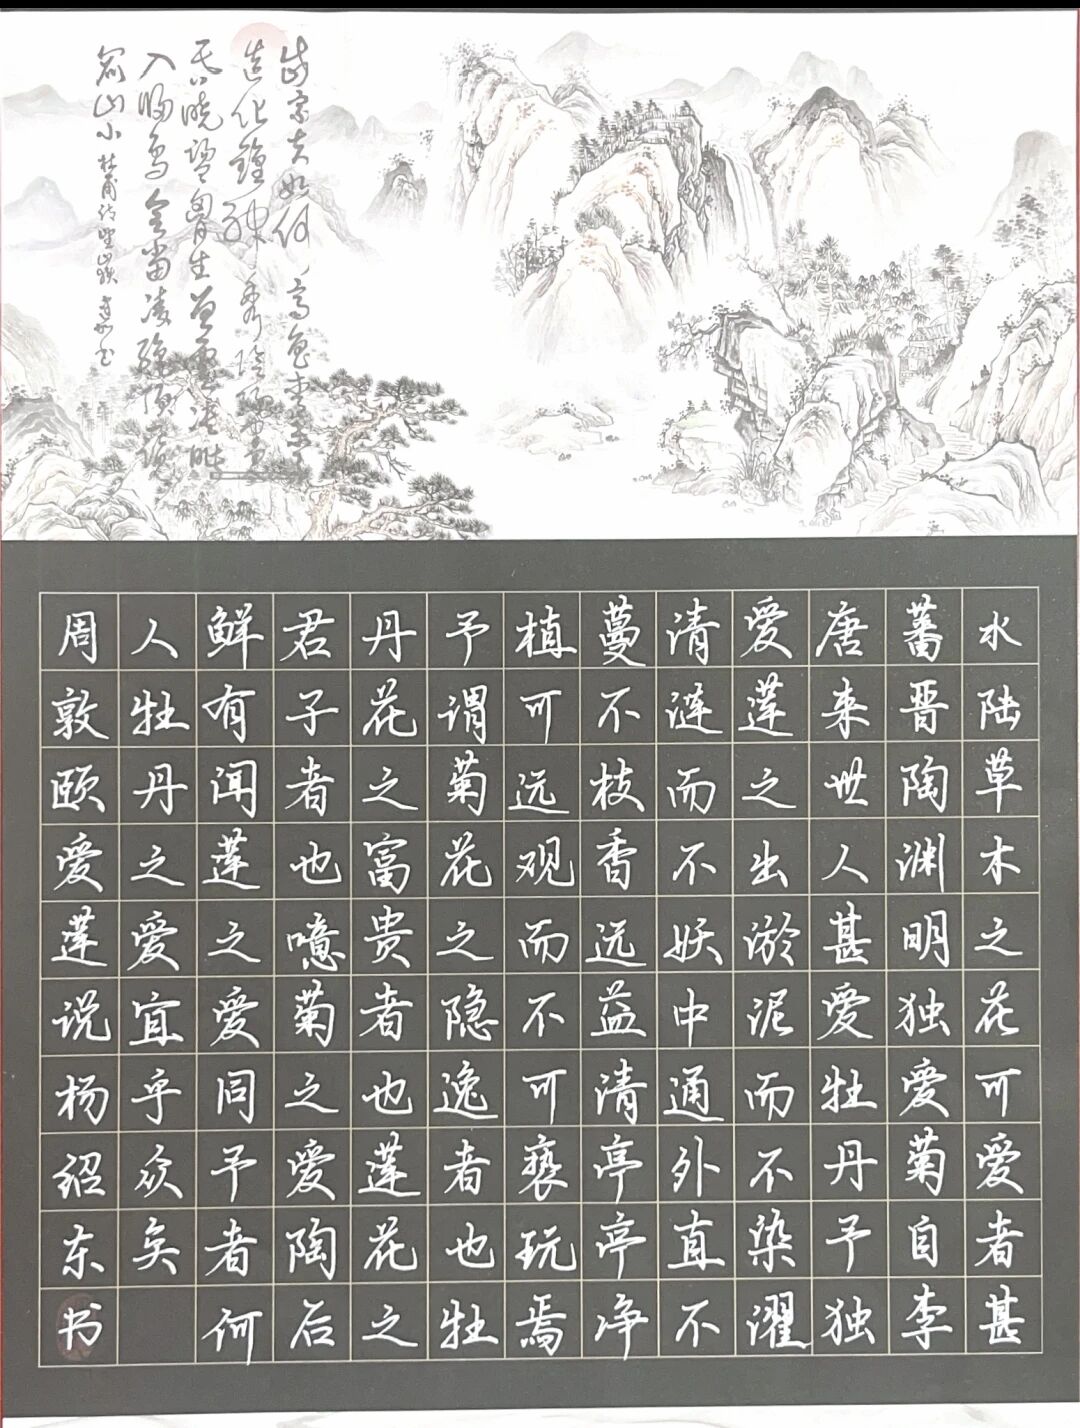 岱宗夫如何齐鲁青未了
造化鍾神秀陰陽割
昏曉盪胸生曾雲决眦
入归鸟会當凌绝顶一览
众山小
杜甫诗望嶽
水陆草木之花可爱者甚
蕃晋陶渊明独爱菊自李
唐来世人甚爱牡丹予独
爱莲之出淤泥而不染濯
清涟而不妖中通外直不
蔓不枝香远益清亭亭净
植可远观而不可亵玩焉
予谓菊花之隐逸者也牡
丹花之富贵者也莲花之
君子者也噫菊之爱陶后
鲜有闻莲之爱同予者何
人牡丹之爱宜乎众矣
周敦颐爱莲说杨绍东书